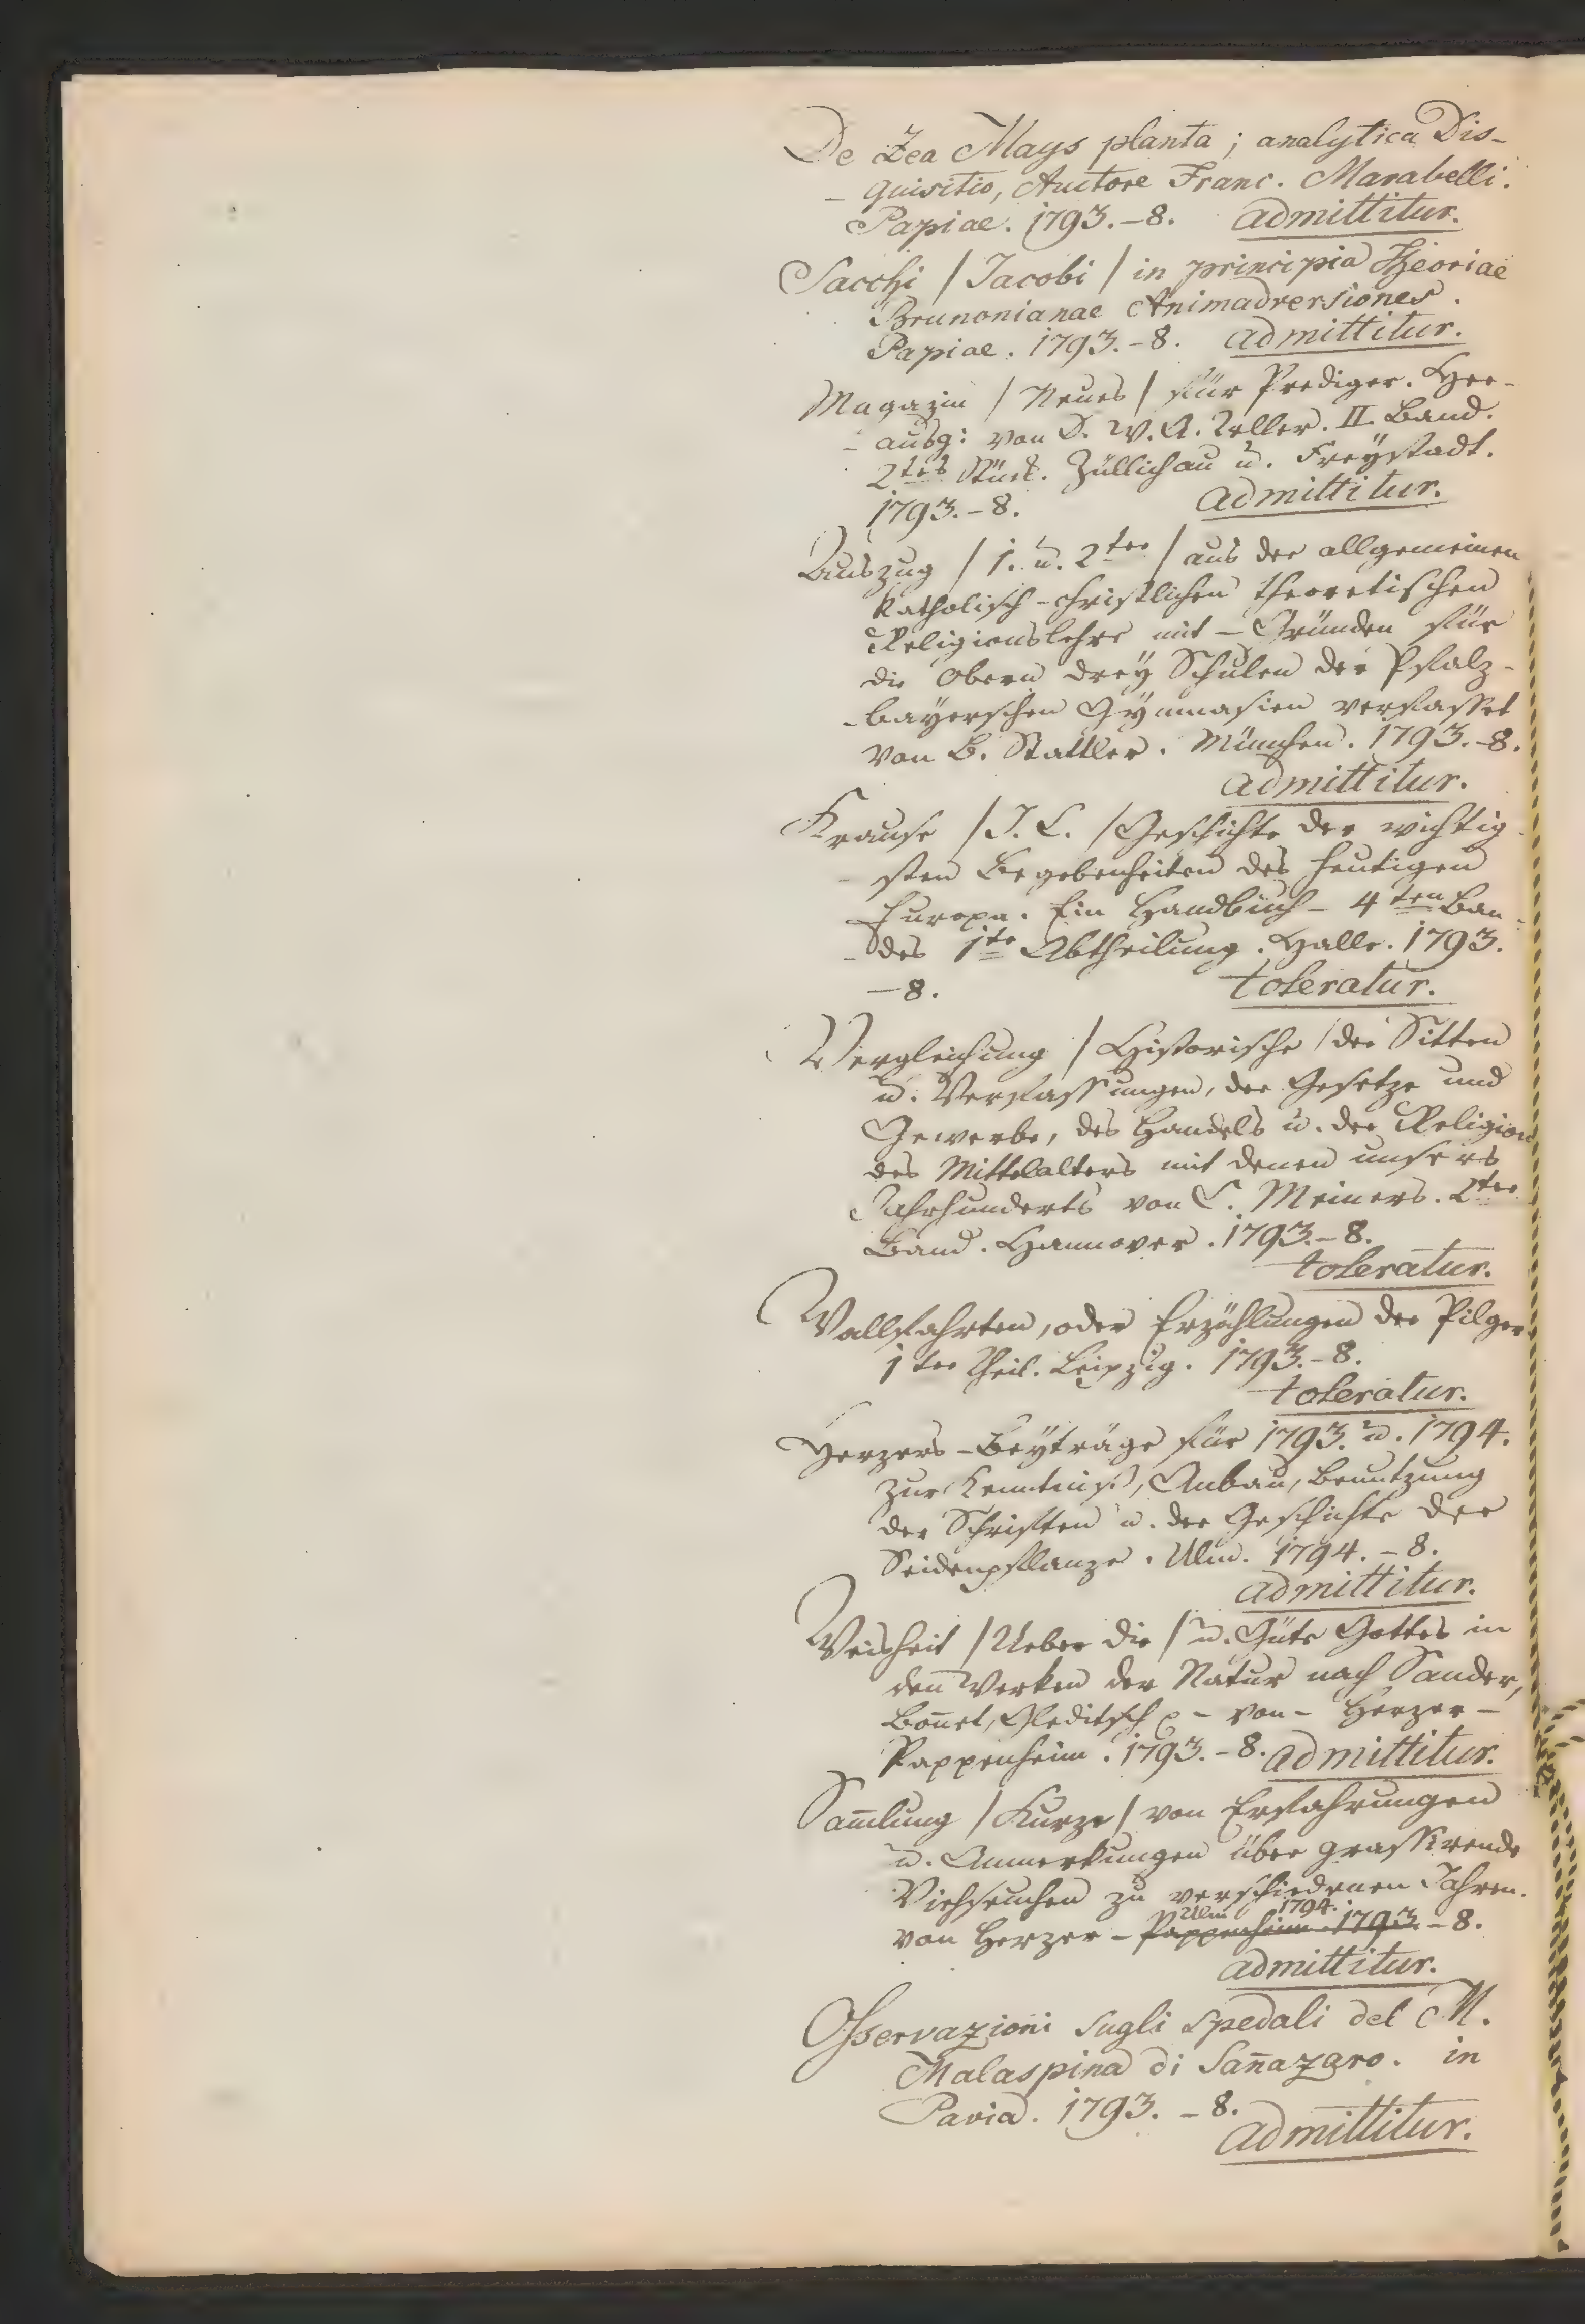 De Zea Mays planta; analytica Dis-
- quisitio, Auctore Franc. Marabelli.
Papiae. 1793.-8. admittitur.
Sacchi / Jacobi / in principia Theoriae
Brunonianae Animadversiones.
Papiae. 1793.-8. admittitur.
Magazin / Neues / für Prediger. Her-
- ausg: von D. W. A. Teller. II. Band.
2tes Stück. Züllichau u. Freÿstadt.
1793.-8. admittitur.
Auszug / 1. u. 2ter / aus der allgemeinen
katholisch-christlichen theoretischen
Religionslehre mit - Gründen für
die Obern dreÿ Schulen der Pfalz-
- baÿerschen Gÿmnasien verfasset
von B. Stattler. München. 1793.-8.
admittitur.
Krause / J. C. / Geschichte der wichtig
- sten Begebenheiten des heutigen
Europa. Ein Handbuch - 4ten Ban
- des 1te Abtheilung. Halle. 1793.
-8. toleratur.
Vergleichung / Historische / der Sitten
u. Verfassungen, der Gesetze und
Gewerbe, des Handels u. der Religion
des Mittelalters mit denen unsers
Jahrhunderts von C. Meiners. 2ter
Band. Hannover. 1793.-8.
toleratur.
Wallfahrten, oder Erzählungen der Pilger
1ter Theil. Leipzig. 1793.-8.
toleratur.
Herzers - Beÿträge für 1793. u. 1794.
zur Kenntniß, Anbau, Benutzung
der Schriften u. der Geschichte der
Seidenpflanze. Ulm. 1794.-8.
admittitur.
Weisheit / Ueber die / u. Güte Gottes in
den Werken der Natur nach Sander,
Bon̄et, Gleditsch - von - Herzer -
Pappenheim. 1793.-8. admittitur.
Sam̄lung / Kurze / von Erfahrungen
u. Anmerkungen über grassirende
Viehseuchen zu verschiedenen Jahren.
Ulm 1794.
von Herzer - Pappenheim. 1793 -8.
admittitur.
Osservazioni sugli spedali del M.
Malaspina di San̄azaro. in
Pavia. 1793. -8.
admittitur.